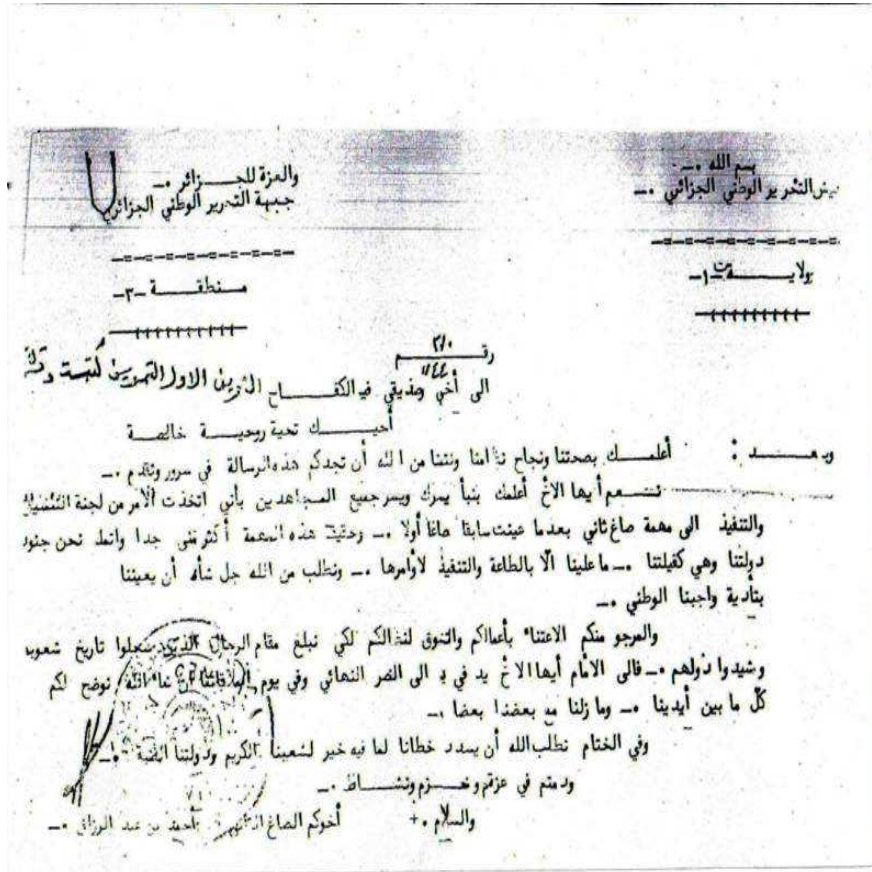 بسم الله ٠—
والعزة للجـــزائر ٠—
جيش التحرير الوطني الجزائري ٠—
جبهة التحرير الوطني الجزائري
بولايـــــة -١-
منطقـــة -٣-
رقــــم ٣١٠
الى أخي وصديقي في الكفـــاح العريف الاول
أحيـــك تحية روحيـــة خالصـة
وبعـــد : أعلمـــك بصحتنا ونجاح نظامنا ونتمنا من الله أن تجدكم هذه الرسالة في سرور وتقدم ٠—
نـــعم أيها الاخ أعلمك بنبأ يسرك ويسر جميع المجاهدين بأني اتخذت الأمر من لجنة التنسيق
والتنفيذ الى مهمة صاغ ثاني بعدما عينت سابقا صاغا أولا ٠— وحقيقة هذه المهمة أكثر مني جدا وانما نحن جنود
دولتنا وهي كفيلتنا ٠— ما علينا الّا بالطاعة والتنفيذ لأوامرها ٠— ونطلب من الله جل شأنه أن يعيننا
بتأدية واجبنا الوطني ٠—
والمرجو منكم الاعتناء بأعمالكم والتفوق لنضالكم لكي نبلغ مقام الرجال الذين سجلوا تاريخ شعوبهم
وشيدوا دولهم ٠— فالى الامام أيها الاخ يد في يد الى النصر النهائي وفي يوم الملاقات ان شاء الله نوضح لكم
كلّ ما بين أيدينا ٠— وما زلنا مع بعضنا بعضا ٠—
وفي الختام نطلب الله أن يسدد خطانا لما فيه خير لشعبنا الكريم ودولتنا الفتية ٠—
ودمتم في عزم وحـــزم ونشـــاط ٠—
والسلام ٠+
أخوكم الصاغ الثاني أحمد بن عبد الرزاق ٠—